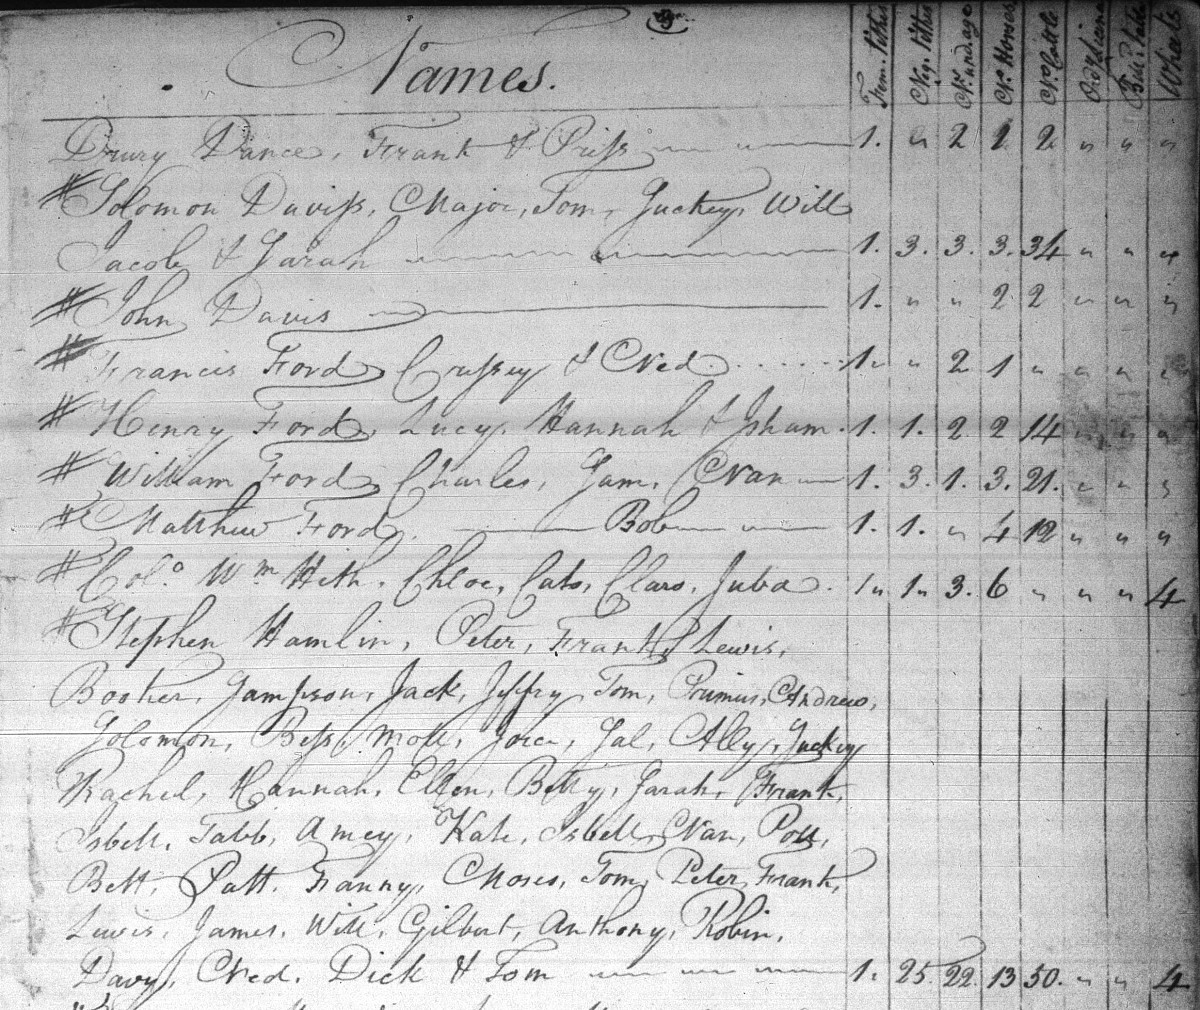 3
Names. Freem. tithes Neg. tithes No. und. age No. Horses No. Cattle Ord. Licence Bill. Table Wheels
Drury Dance, Frank & Priss 1. " 2 1 2 " " "
# Solomon Daviss, Major, Tom, Suckey, Will
Jacob & Sarah 1. 3. 3. 3. 34 " " "
# John Davis 1. " " 2 2 " " "
# Francis Ford, Cressey & Ned 1. " 2 1 " " " "
# Henry Ford, Lucy, Hannah & Isham. 1. 1. 2. 2 14 " " "
# William Ford, Charles, Sam, Nan 1. 3. 1. 3. 21. " " "
# Matthew Ford, Bob 1. 1. " 4 12 " " "
# Colo. Wm. Heth, Chloe, Cato, Claro, Juba. 1 " 1 " 3. 6 " " " 4
# Stephen Hamlin, Peter, Frank, Lewis,
Booker, Sampson, Jack, Jeffry, Tom, Primus, Andrew,
Solomon, Bess, Moll, Joice, Sal, Ally, Suckey
Rachel, Hannah, Ellen, Betty, Sarah, Frank,
Isbell, Tabb, Amey, Kate, Isbell, Nan, Poll,
Bett, Patt, Fanny, Moses, Tom, Peter, Frank,
Lewis, James, Will, Gilbert, Anthony, Robin,
Davy, Ned, Dick & Tom 1. 25. 22. 13 50. " " 4